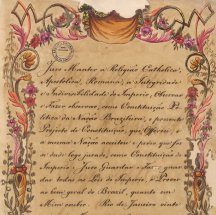 Juro Manter a Religião Catholica
Apostolica, Romana, a Integridade
e Indivisibilidade do Imperio, Observar
e Fazer observar, como Constituição Po
litica da Nação Brazileira, o presente
Projecto de Constituição, que Offereci, e
a mesma Nação aceitou, e pedio que fos
se desde logo jurado, como Constituição do
Imperio: Juro Guardar, e Fazer guar
dar todas as Leis do Imperio, e Prover
ao bem geral do Brazil, quanto em
Mim couber. Rio de Janeiro vinte